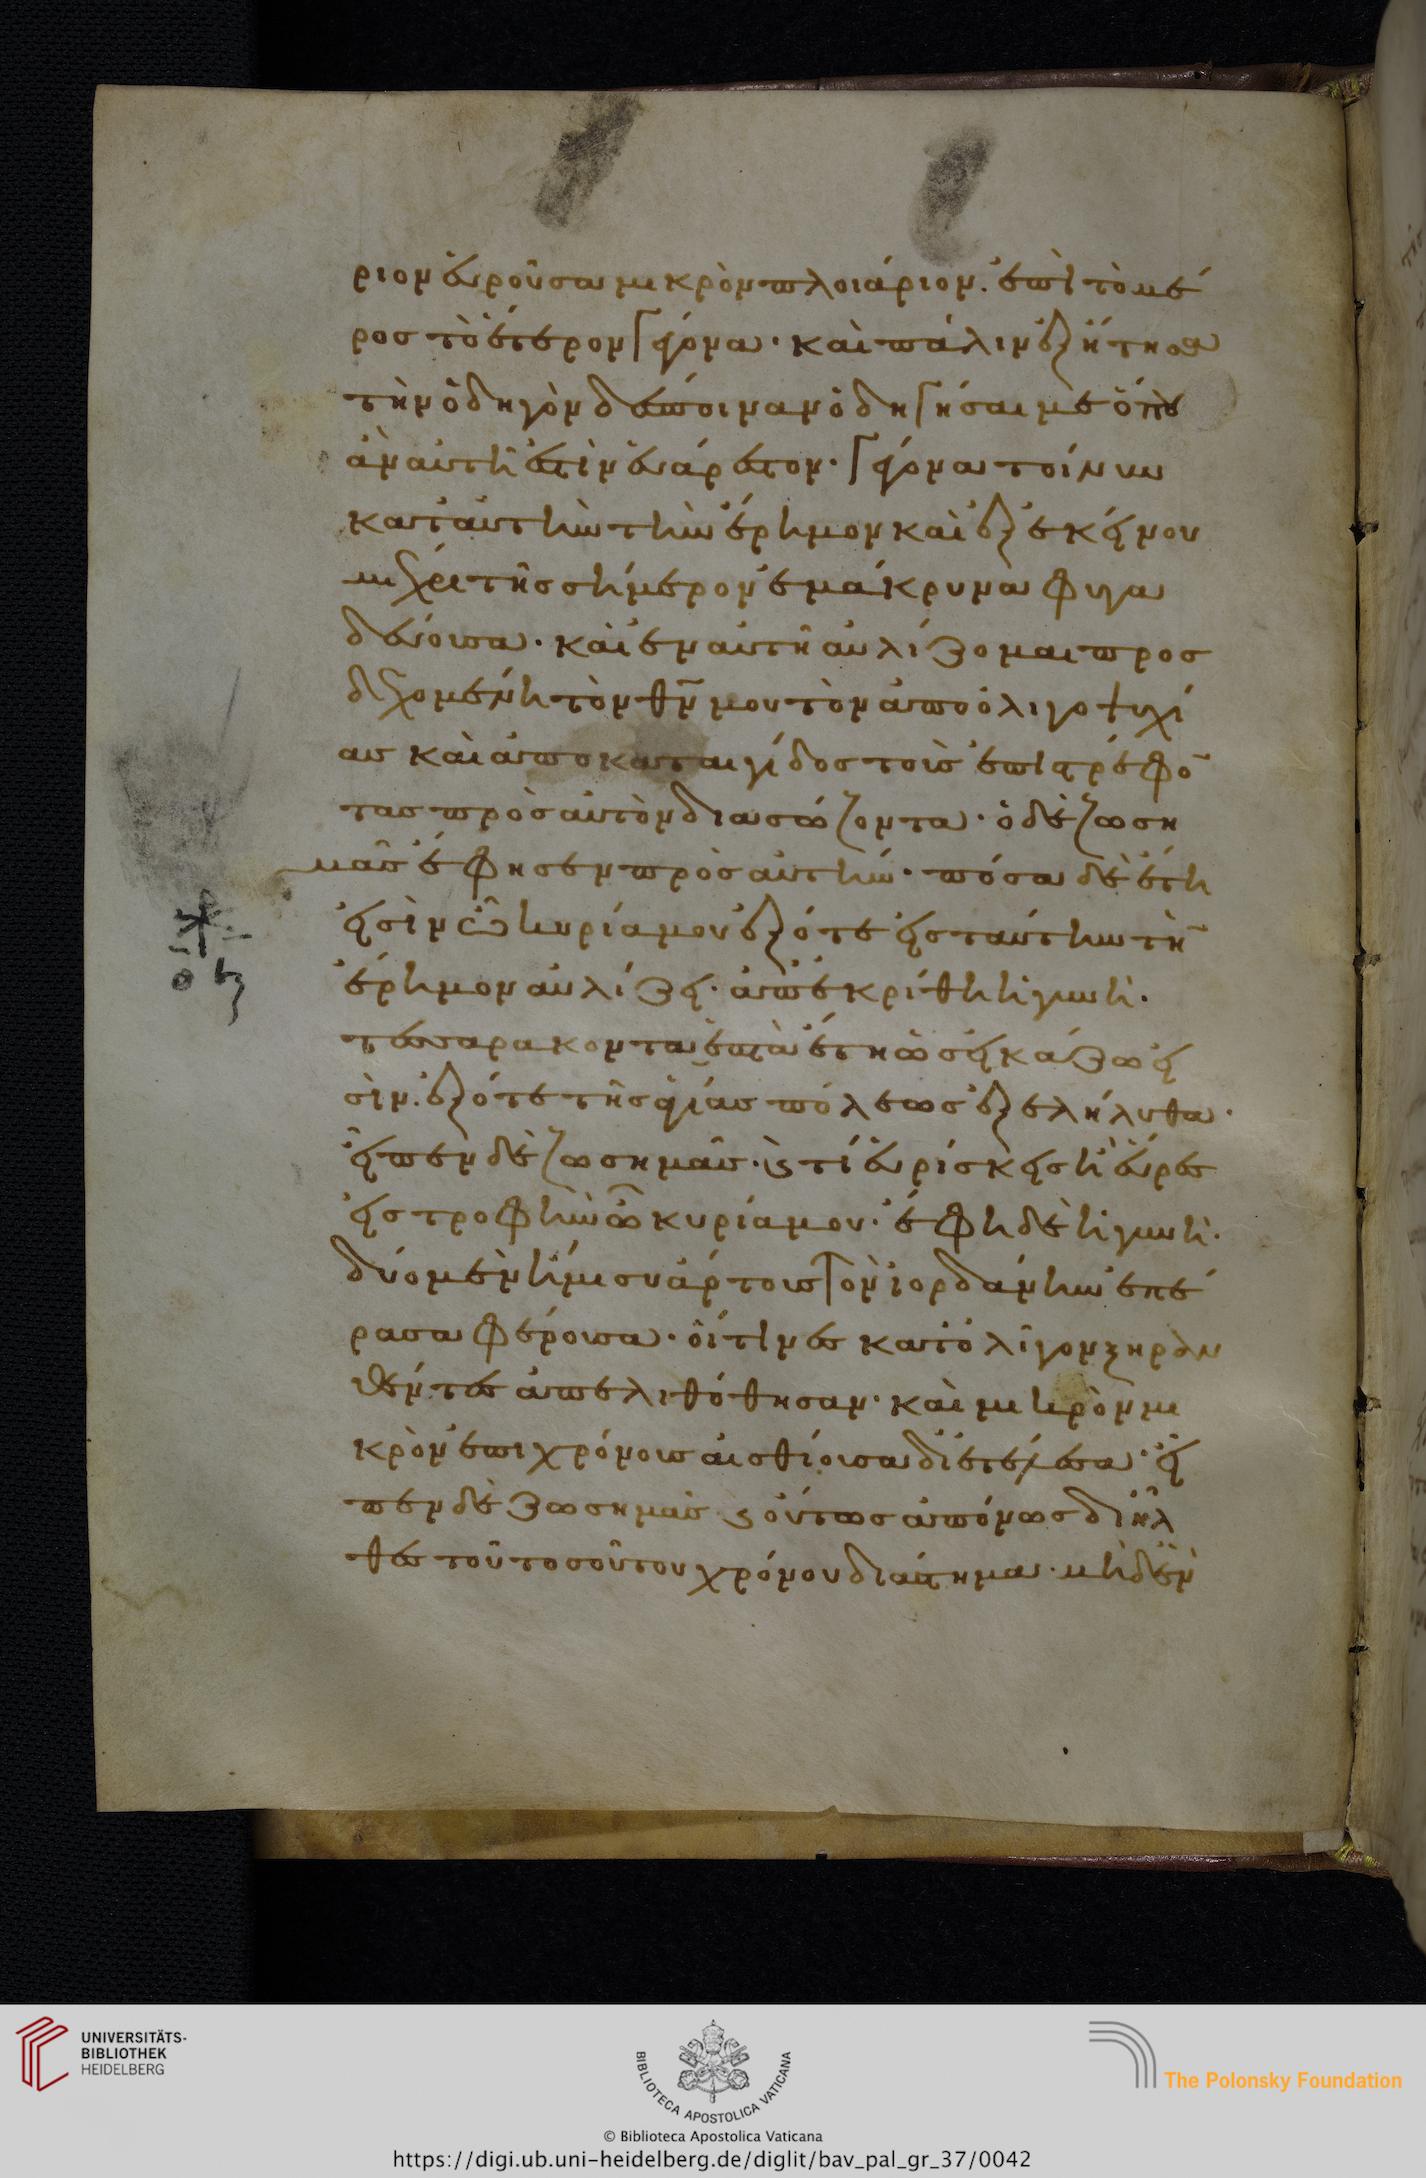 ριον εὑροῦσα μικρὸν πλοιάριον. ἐπὶ τὸ μέ
ρος τὸ ἕτερον γέγονα· καὶ πάλιν ἐζήτησα
τὴν ὁδηγὸν δέσποιναν ὁδηγήσαι με ὅπου
ἂν αὐτῆ ἐστὶν εὐάρεστον· γέγονα τοίνυν
κατ' αὐτὴν τὴν ἔρημον καὶ ἐξ ἐκείνου
μέχρι τῆς σήμερον ἐμάκρυνα φυγα
δεύουσα· καὶ ἐν αὐτῆ αὐλίζομαι προσ
δεχομένη τὸν θν μου τὸν ἀπο ὀλιγοψυχί
ας καὶ ἀπο καταιγίδος τοὺς ἐπιστρέφο
τας πρὸς αὐτὸν διασώζοντα· ὁ δὲ ζωση
μᾶς ἔφησεν πρὸς αὐτήν· πόσα δὲ ἔτη
εἰσὶν ὦ κυρία μου ἐξ ότε εἰς ταύτην τὴ
ἔρημον αὐλίζει· ἀπεκρίθη ἡ γυνὴ·
τεσσαρακοντα ἑπτὰ ἔτη ὡς εἰκάζω εἰ
σὶν. ἐξ ότε τῆς ἁγίας πόλεως ἐξελήλυθα·
εἶπεν δὲ ζωσημᾶς· καὶ τί εὑρίσκεις ἢ εὗρες
εἰς τροφὴν ὦ κυρία μου· ἔφη δὲ ἡ γυνὴ·
δύο μὲν ἥμισυ ἄρτους τὸν ἰορδάνην ἐπέ
ρασα φέρουσα· οἵ τινες κατ' ὀλίγον ξηραν
θέντες ἀπελιθώθησαν· καὶ μικρὸν μι
κρὸν ἐπι χρόνοις αἰσθίουσα διετέλεσα· εἶ
πεν δὲ ζωσημᾶς· καὶ οὕτως ἀπόνως διῆλ
θες τοῦ τοσούτου χρόνου διάστημα· μὴδὲν
UNIVERSITÄTS-
BIBLIOTHEK
HEIDELBERG
BIBLIOTECA APOSTOLICA VATICANA
The Polonsky Foundation
© Biblioteca Apostolica Vaticana
https://digi.ub.uni-heidelberg.de/diglit/bav_pal_gr_37/0042